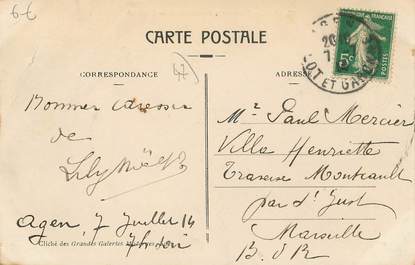 6€
CARTE POSTALE
CORRESPONDANCE
47
ADRESSE
5c
POSTES
LOT ET GARONNE
Bonnes
de
Lily
Agen, 7 Juillet 14
7h soir
Cliché des Grandes Galeries Modernes
Mr Paul Mercier
Villa Henriette
Traverse Montcault
par St Just
Marseille
B. d R